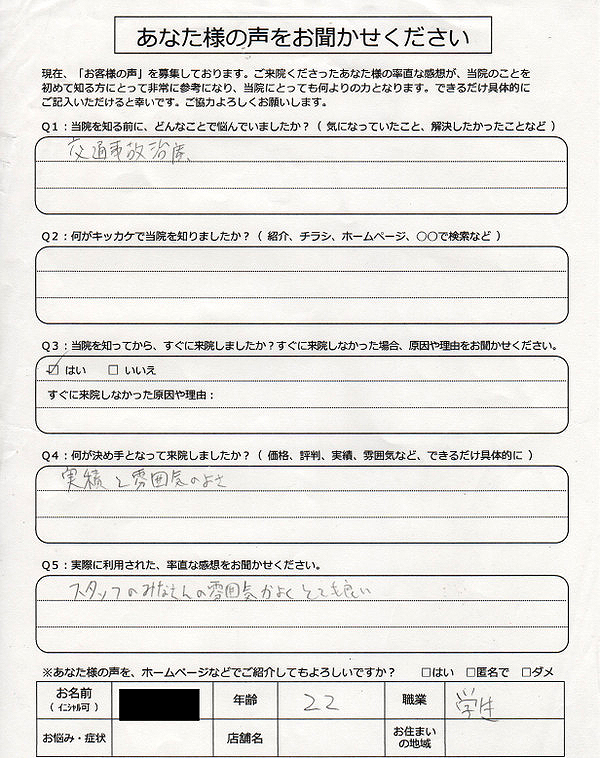 あなた様の声をお聞かせください
現在、「お客様の声」を募集しております。ご来院くださったあなた様の率直な感想が、当院のことを
初めて知る方にとって非常に参考になり、当院にとっても何よりの力となります。できるだけ具体的に
ご記入いただけると幸いです。ご協力よろしくお願いします。
Q1:当院を知る前に、どんなことで悩んでいましたか?( 気になっていたこと、解決したかったことなど )
交通事故治療、
Q2:何がキッカケで当院を知りましたか?( 紹介、チラシ、ホームページ、〇〇で検索など )
Q3:当院を知ってから、すぐに来院しましたか?すぐに来院しなかった場合、原因や理由をお聞かせください。
☑ はい □ いいえ
すぐに来院しなかった原因や理由:
Q4:何が決め手となって来院しましたか?( 価格、評判、実績、雰囲気など、できるだけ具体的に )
実績と雰囲気のよさ
Q5:実際に利用された、率直な感想をお聞かせください。
スタッフのみなさんの雰囲気がよくとても良い
※あなた様の声を、ホームページなどでご紹介してもよろしいですか? □はい □匿名で □ダメ
お名前 年齢 22 職業 学生
( イニシャル可 )
お悩み・症状 店舗名 お住まい
の地域